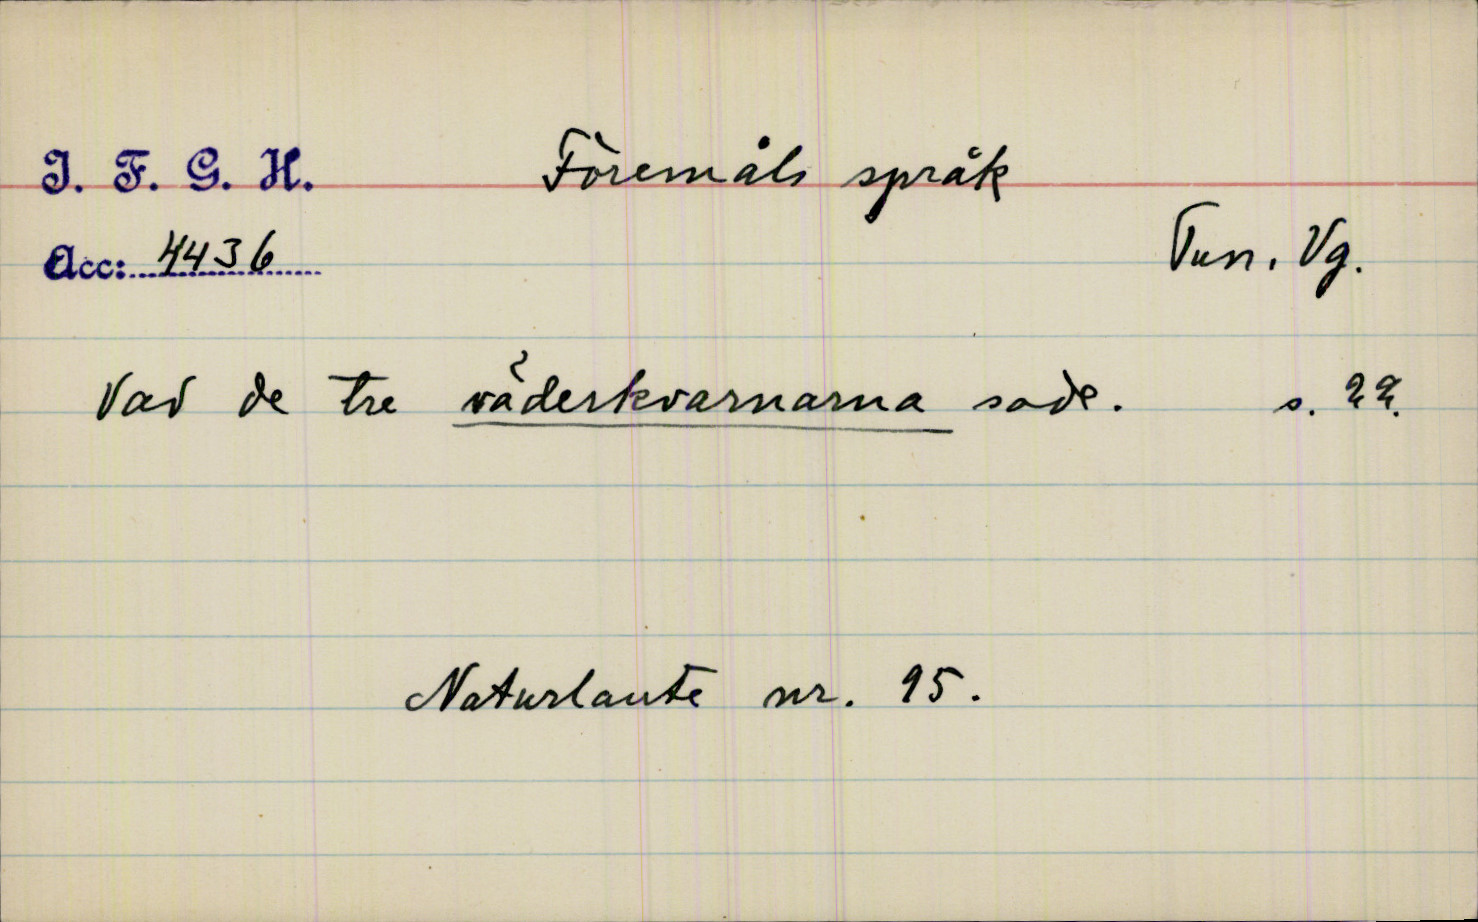 I. F. G. H.
Föremåls språk
Acc: 4436
Tun. Vg.
Vad de tre väderkvarnarna sade. s. 22.
Naturlaute nr. 95.